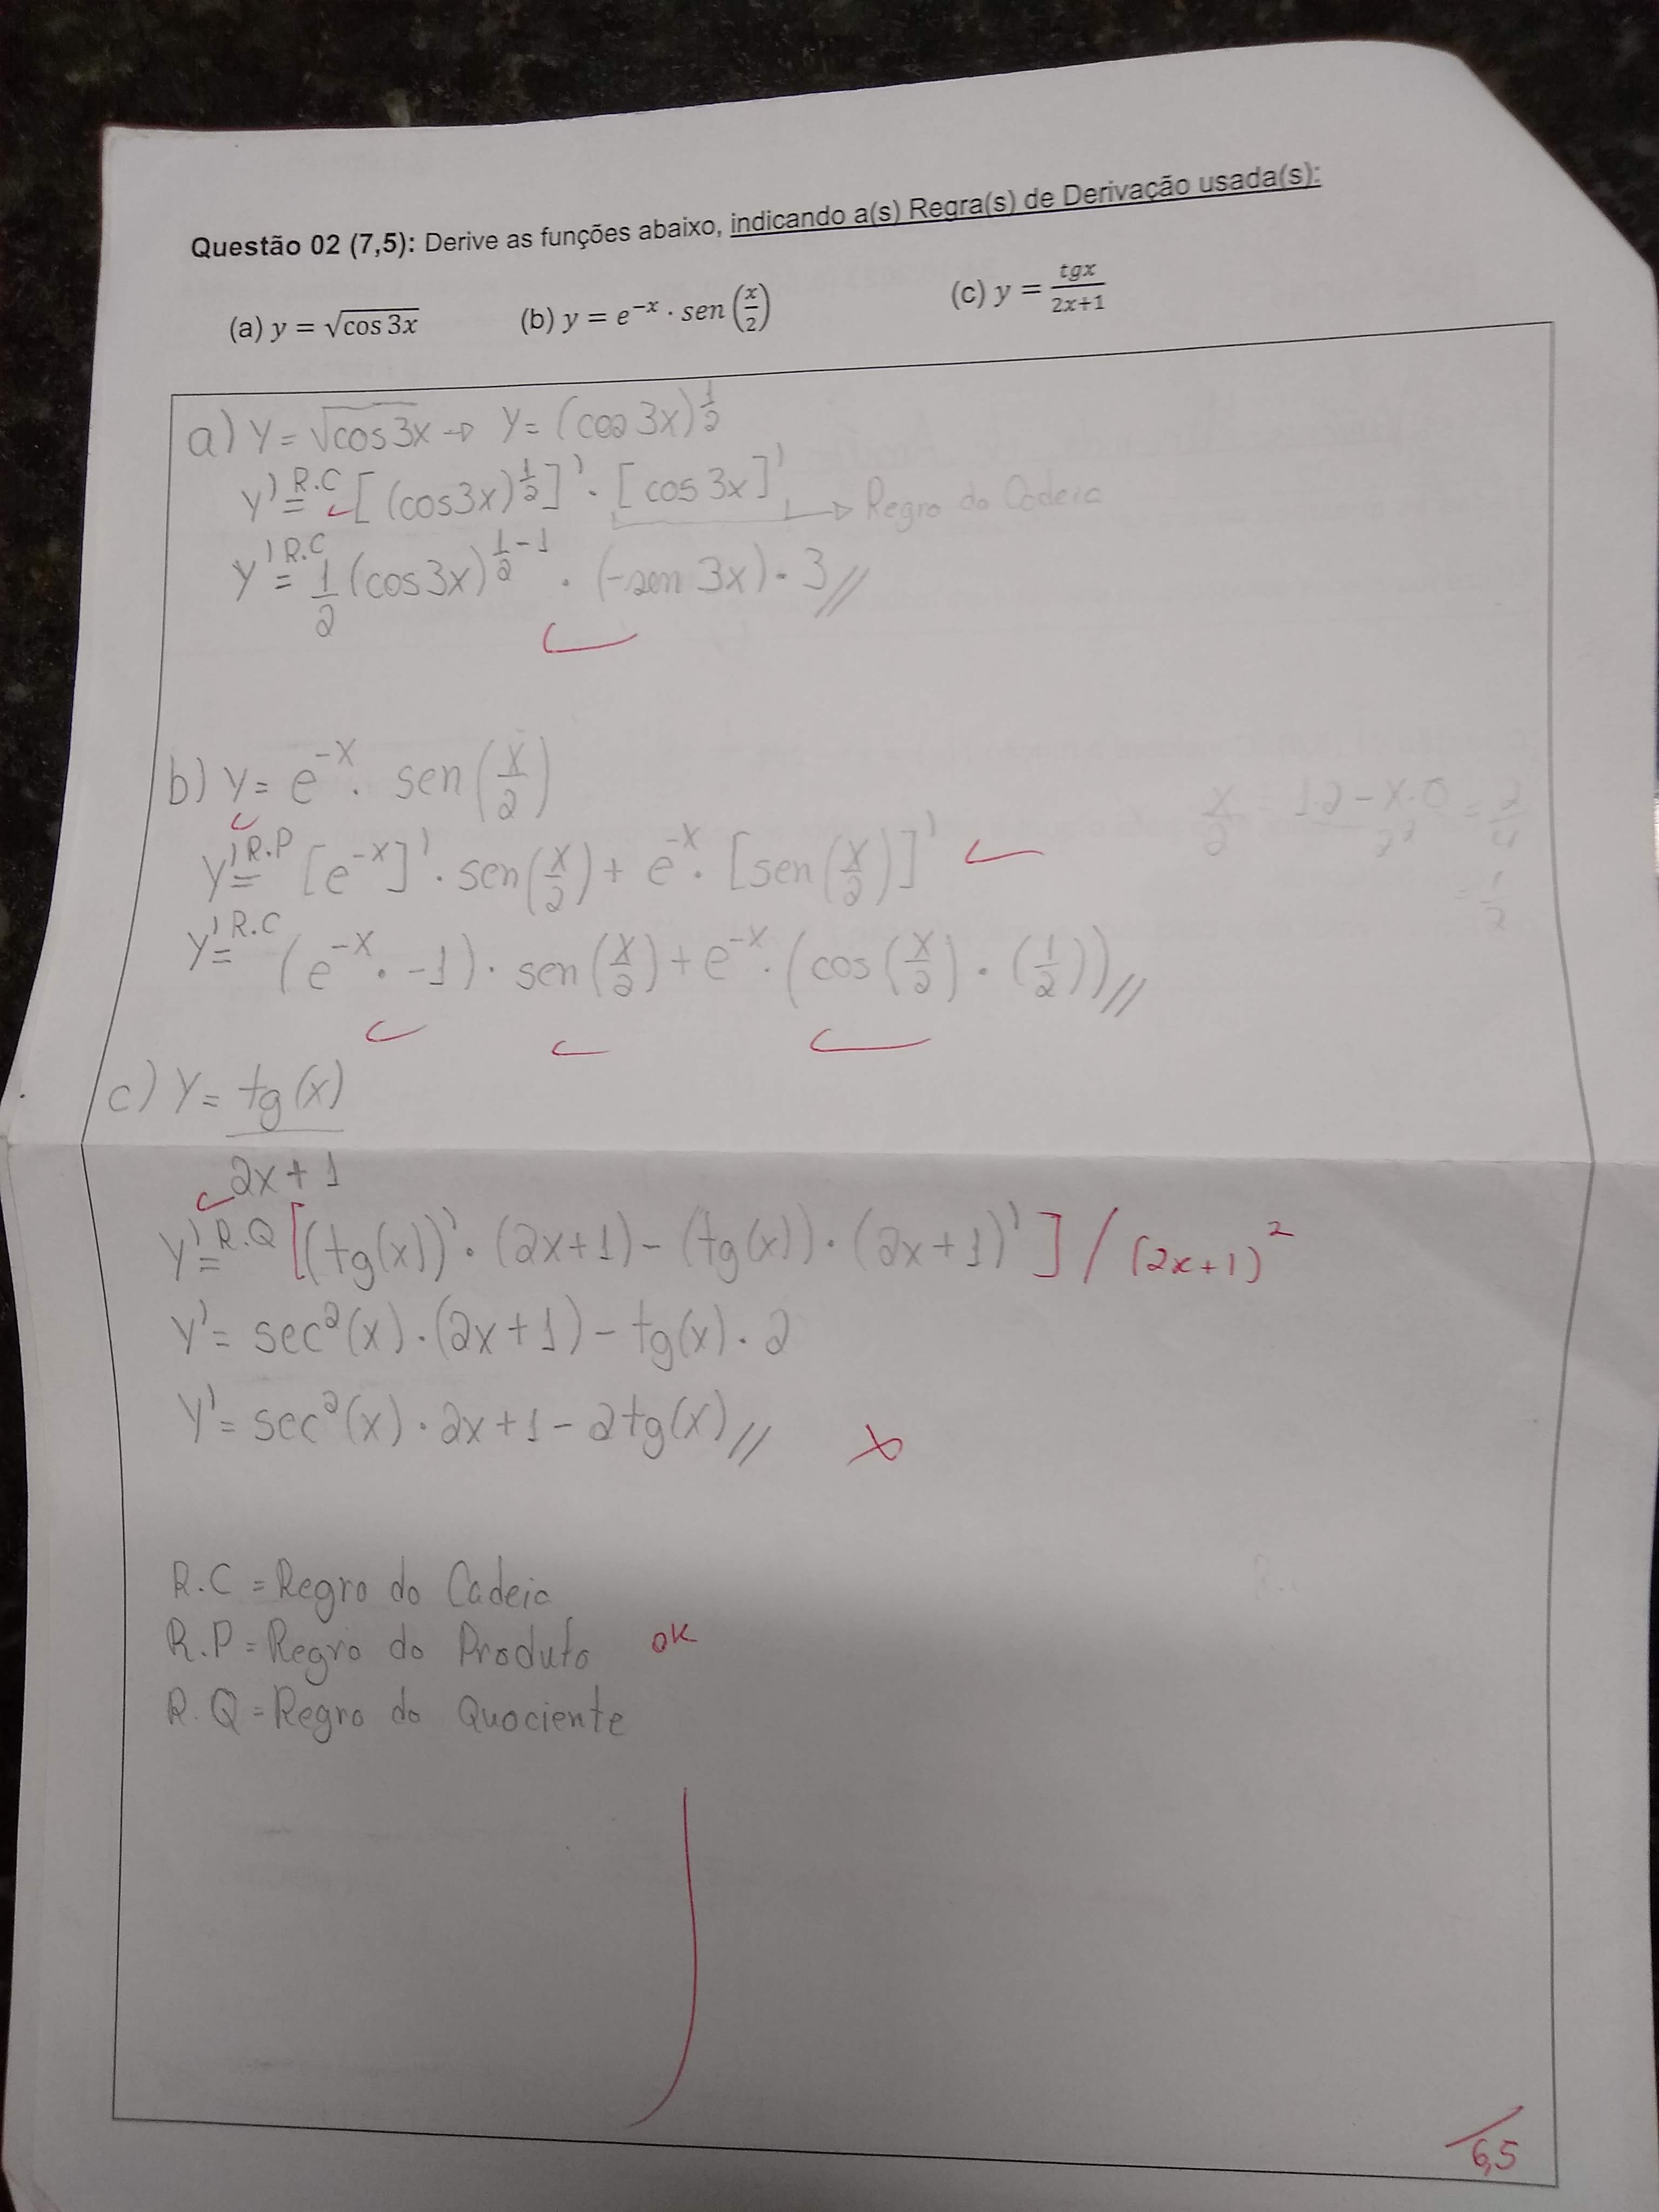 Questão 02 (7,5): Derive as funções abaixo, indicando a(s) Regra(s) de Derivação usada(s):
(a) y = √cos 3x (b) y = e^(-x) · sen (x/2) (c) y = tgx/(2x+1)
a) Y = √cos 3x → Y = (cos 3x)^(1/2)
Y' = R.C [(cos3x)^(1/2)]' · [cos 3x]' → Regra da Cadeia
Y' = R.C 1/2 (cos 3x)^(1/2 - 1) · (-sen 3x) · 3 //
b) Y = e^(-x) · sen (x/2)
x/2 = (1·2 - x·0)/2² = 2/4
= 1/2
Y' = R.P [e^(-x)]' · sen (x/2) + e^(-x) · [sen (x/2)]'
Y' = R.C (e^(-x) · -1) · sen (x/2) + e^(-x) · (cos (x/2) · (1/2)) //
c) Y = tg(x)/(2x + 1)
Y' = R.Q [(tg(x))' · (2x+1) - (tg(x)) · (2x+1)'] / (2x+1)²
Y' = sec²(x) · (2x+1) - tg(x) · 2
Y' = sec²(x) · 2x+1 - 2tg(x) //
R.C = Regra da Cadeia
R.P = Regra do Produto ok
R.Q = Regra do Quociente
6,5